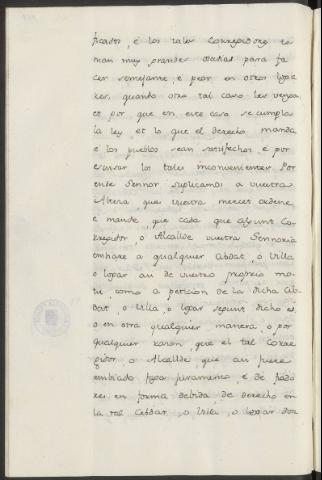 ficados, é los tales Corregidores to
man muy grandes osadias para fa
cer semejante, é peor en otros logа
res, quando otro tal caso les venga,
et por que en este caso se cumpla
la ley, et lo que el derecho manda
é los pueblos sean satisfechos é por
escusar los tales inconvenientes Por
ende Sennor suplicamos á vuestra
Alteza, que vuestra merced ordene
é mande, que cada que algunt Co-
rregidor, o Alcallde vuestra Sennoria
embiare á qualquier Cibdat, o Villa
o logar asi de vuestro proprio mo-
tu, como a peticion de la dicha Cib
dat, o Villa, o logar segunt dicho es,
o en otra qualquier manera, o por
qualquier razon, que el tal Corre
gidor, o Alcallde que asi fuere
embiado faga juramento, é dé fiado
res en forma debida de derecho en
la tal Cibdat, o Villa, o logar don